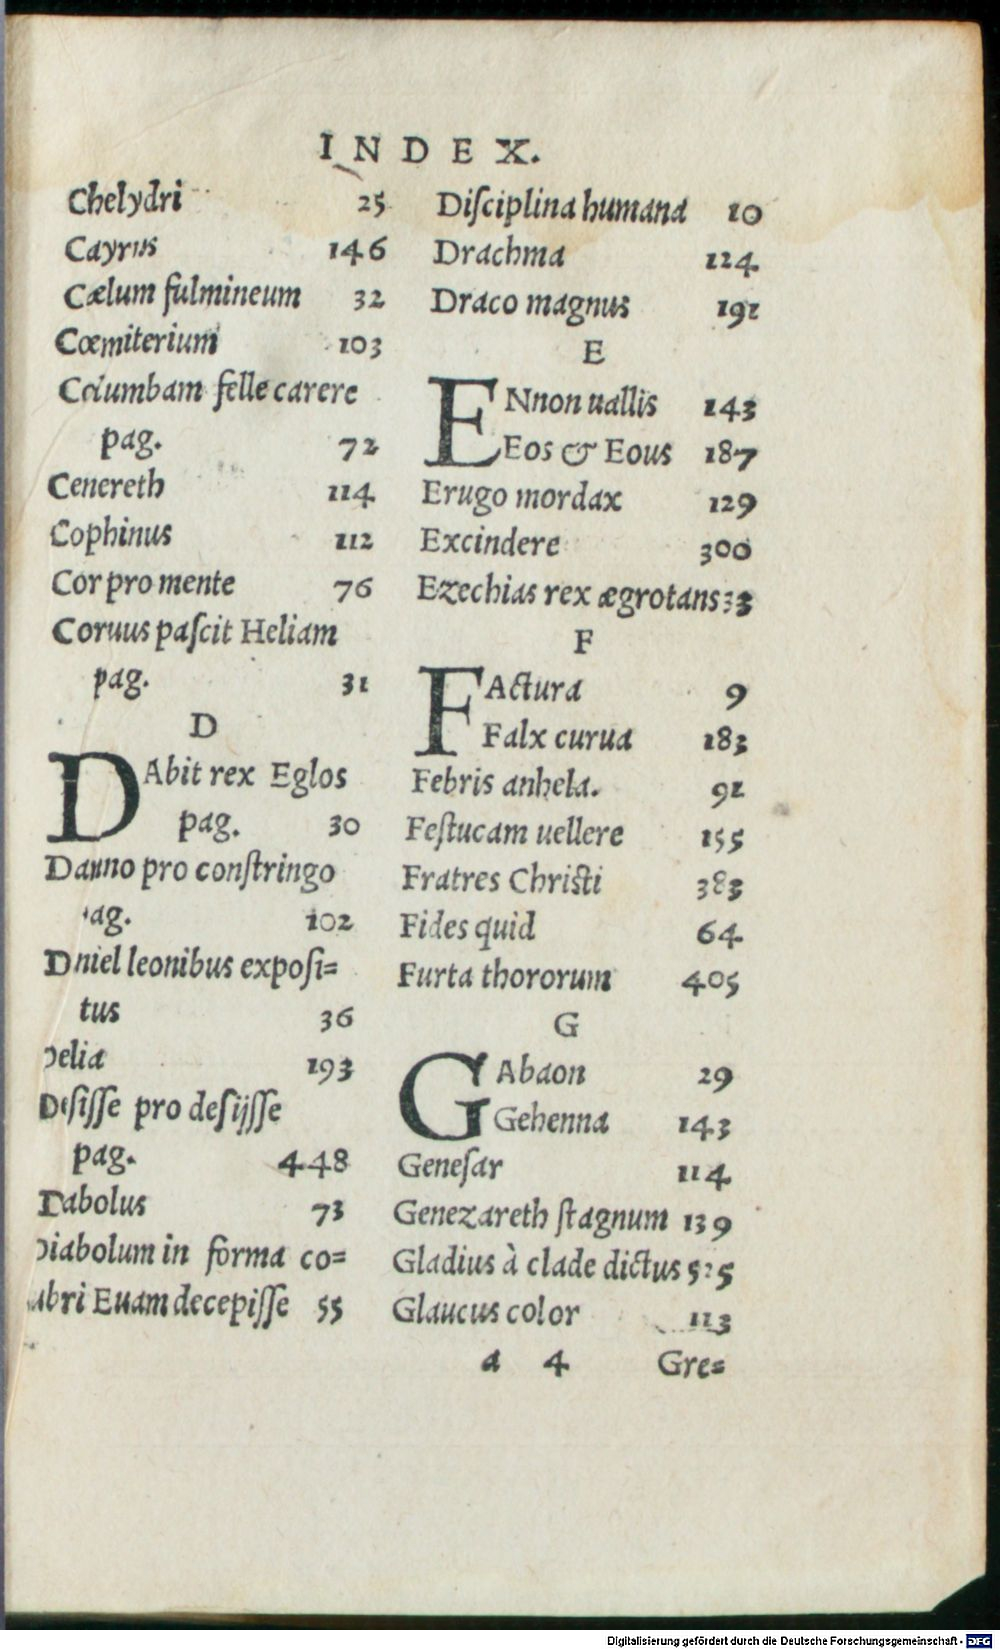 INDEX.
Chelydri 25
Cayrus 146
Cælum fulmineum 32
Cœmiterium 103
Columbam felle carere
pag. 72
Cenereth 114
Cophinus 112
Cor pro mente 76
Coruus paſcit Heliam
pag. 31
D
DAbit rex Eglos
pag. 30
Damno pro conſtringo
ag. 102
Dniel leonibus expoſi=
tus 36
Delia 193
Deſiſſe pro deſijſſe
pag. 448
Dabolus 73
Diabolum in forma co=
ubri Euam decepiſſe 55
Diſciplina humana 10
Drachma 124
Draco magnus 191
E
ENnon uallis 143
Eos & Eous 187
Erugo mordax 129
Excindere 300
Ezechias rex ægrotans 33
F
FActura 9
Falx curua 183
Febris anhela. 91
Feſtucam uellere 155
Fratres Chriſti 383
Fides quid 64
Furta thororum 405
G
GAbaon 29
Gehenna 143
Geneſar 114
Genezareth ſtagnum 139
Gladius à clade dictus
Glaucus color 113
a 4 Gre=
Digitalisierung gefördert durch die Deutsche Forschungsgemeinschaft - DFG